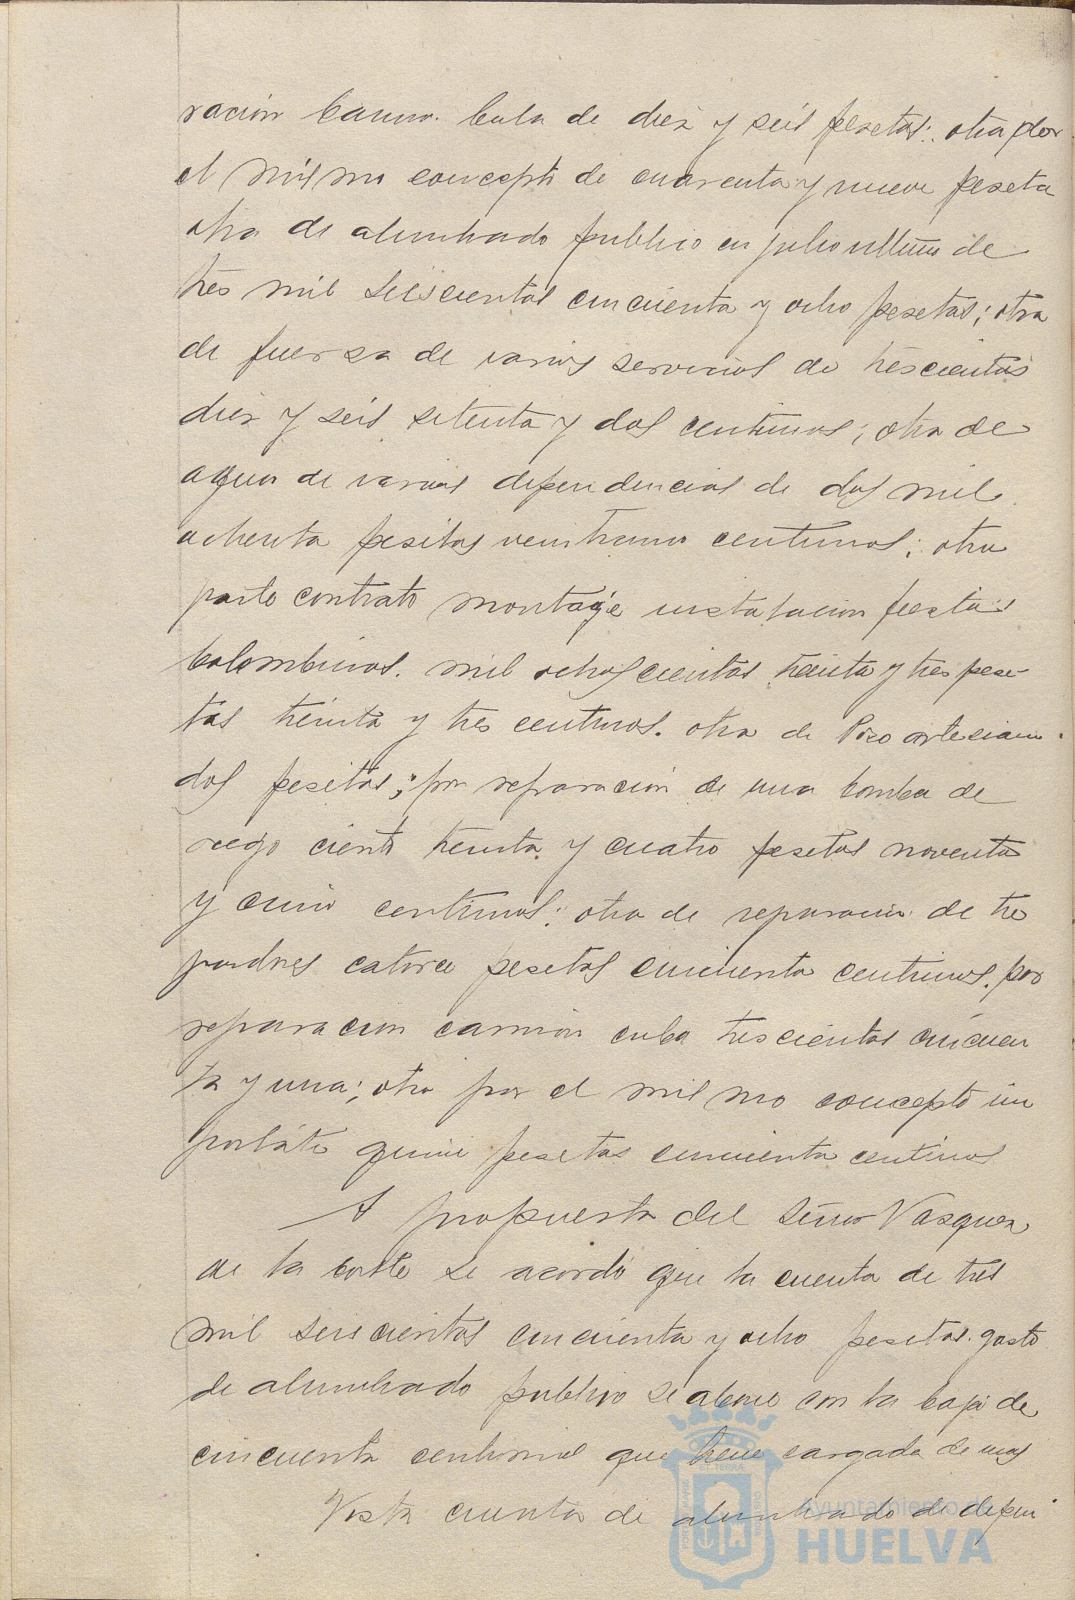 ración camio. Cuba de diez y seis pesetas; otra por
el mismo concepto de cuarenta y nueve peseta
otra de alumbrado publico en julio ultimo de
tres mil seiscientas cincuenta y ocho pesetas; otra
de fuerza de varios servicios de trescientas
diez y seis setenta y dos centimos; otra de
agua de varias dependencias de dos mil
ochenta pesetas veintiuno centimos; otra
parte contrato montage instalacion fiestas
Colombinas. mil ochoscientas treinta y tres pese-
tas treinta y tres centimos. otra de Pozo artesiano
dos pesetas; por reparación de una bomba de
riego ciento treinta y cuatro pesetas noventa
y cinco centimos; otra de reparacion de tre
catorce pesetas cincuenta centimos. por
reparacion camion cuba trescientas cincuen
ta y una; otra por el mismo concepto im
portate quince pesetas cincuenta centimos
A propuesta del Señor Vazquez
de la Corte se acordó que la cuenta de tres
mil seiscientas cincuenta y ocho pesetas gasto
de alumbrado publico se abone con la baja de
cincuenta centimos que tiene cargada de mas
Vista cuenta de alumbrado de depen
Ayuntamiento de
HUELVA